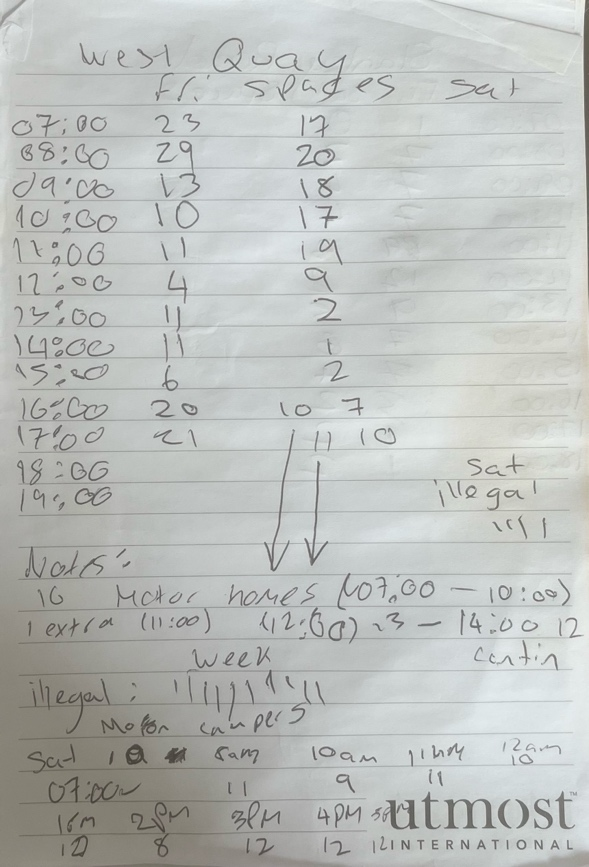 West Quay
Fri spaces Sat
07:00 23 17
08:00 29 20
09:00 13 18
10:00 10 17
11:00 11 19
12:00 4 9
13:00 11 2
14:00 11 1
15:00 6 2
16:00 20 10 7
17:00 21 11 10
18:00
19:00
Sat
illegal
Notes:
10 Motor homes (07:00 – 10:00)
1 extra (11:00) (12:00) – 14:00 12
Week
illegal:
Motor campers
Sat 10 8am 10am 11am 12am
07:00 11 9 11 10
2PM 3PM 4PM
12 8 12 12 12
utmost™
INTERNATIONAL